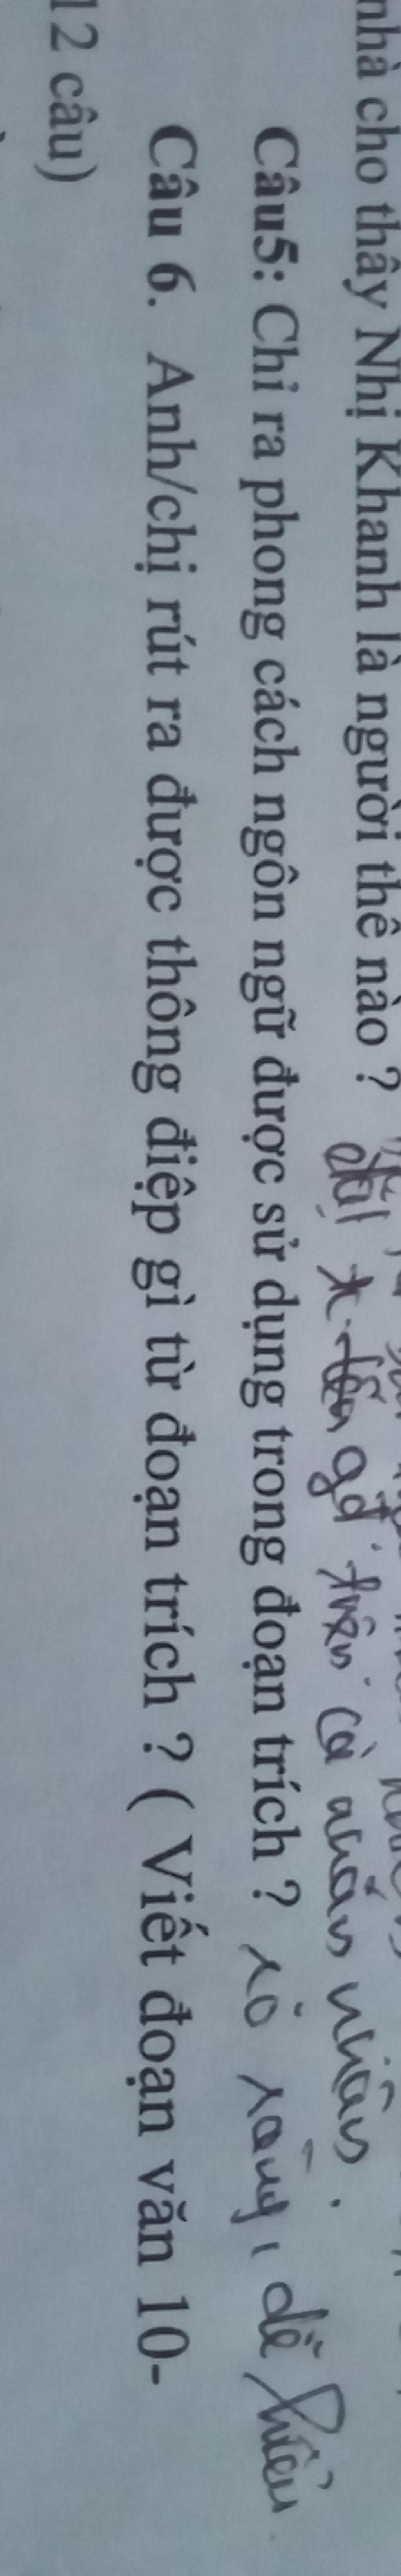 nhà cho thấy Nhị Khanh là người thế nào ?
đặt x lên gđ trên cả
Câu5: Chỉ ra phong cách ngôn ngữ được sử dụng trong đoạn trích ? rõ ràng, dễ hiểu
Câu 6. Anh/chị rút ra được thông điệp gì từ đoạn trích ? ( Viết đoạn văn 10-
12 câu)